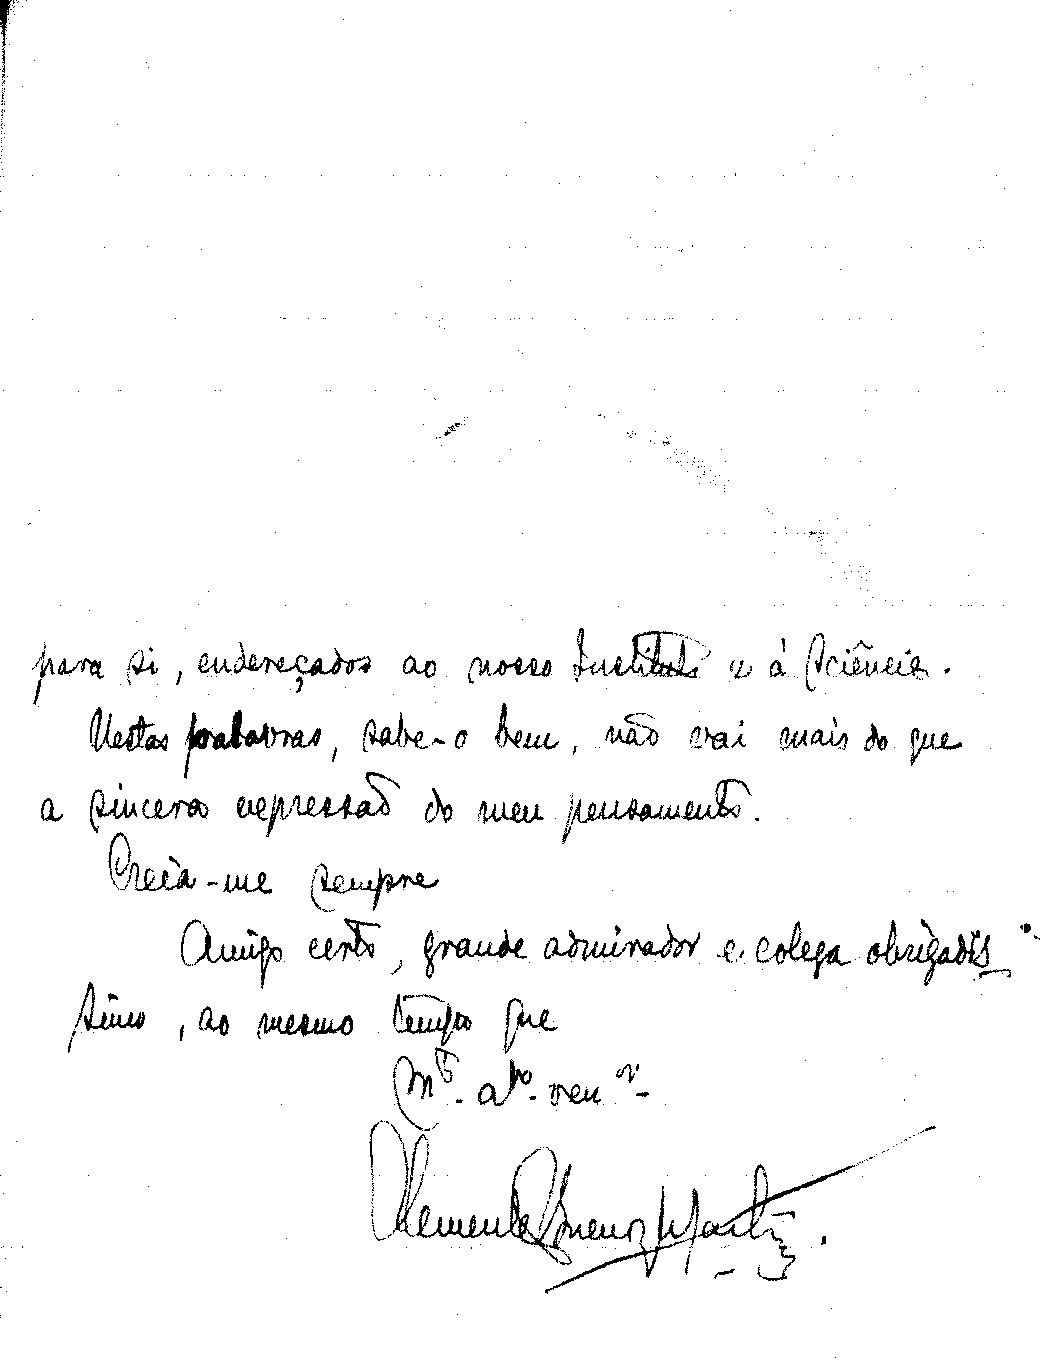 para si, endereçados ao nosso Instituto e á Sciência.
Nestas palavras, sabe-o bem, não vai mais do que
a sincera expressão do meu pensamento.
Creia-me sempre
Amigo certo, grande admirador e colega obrigadis
simo, ao mesmo tempo que
Mto. ato. ven or
Clemente